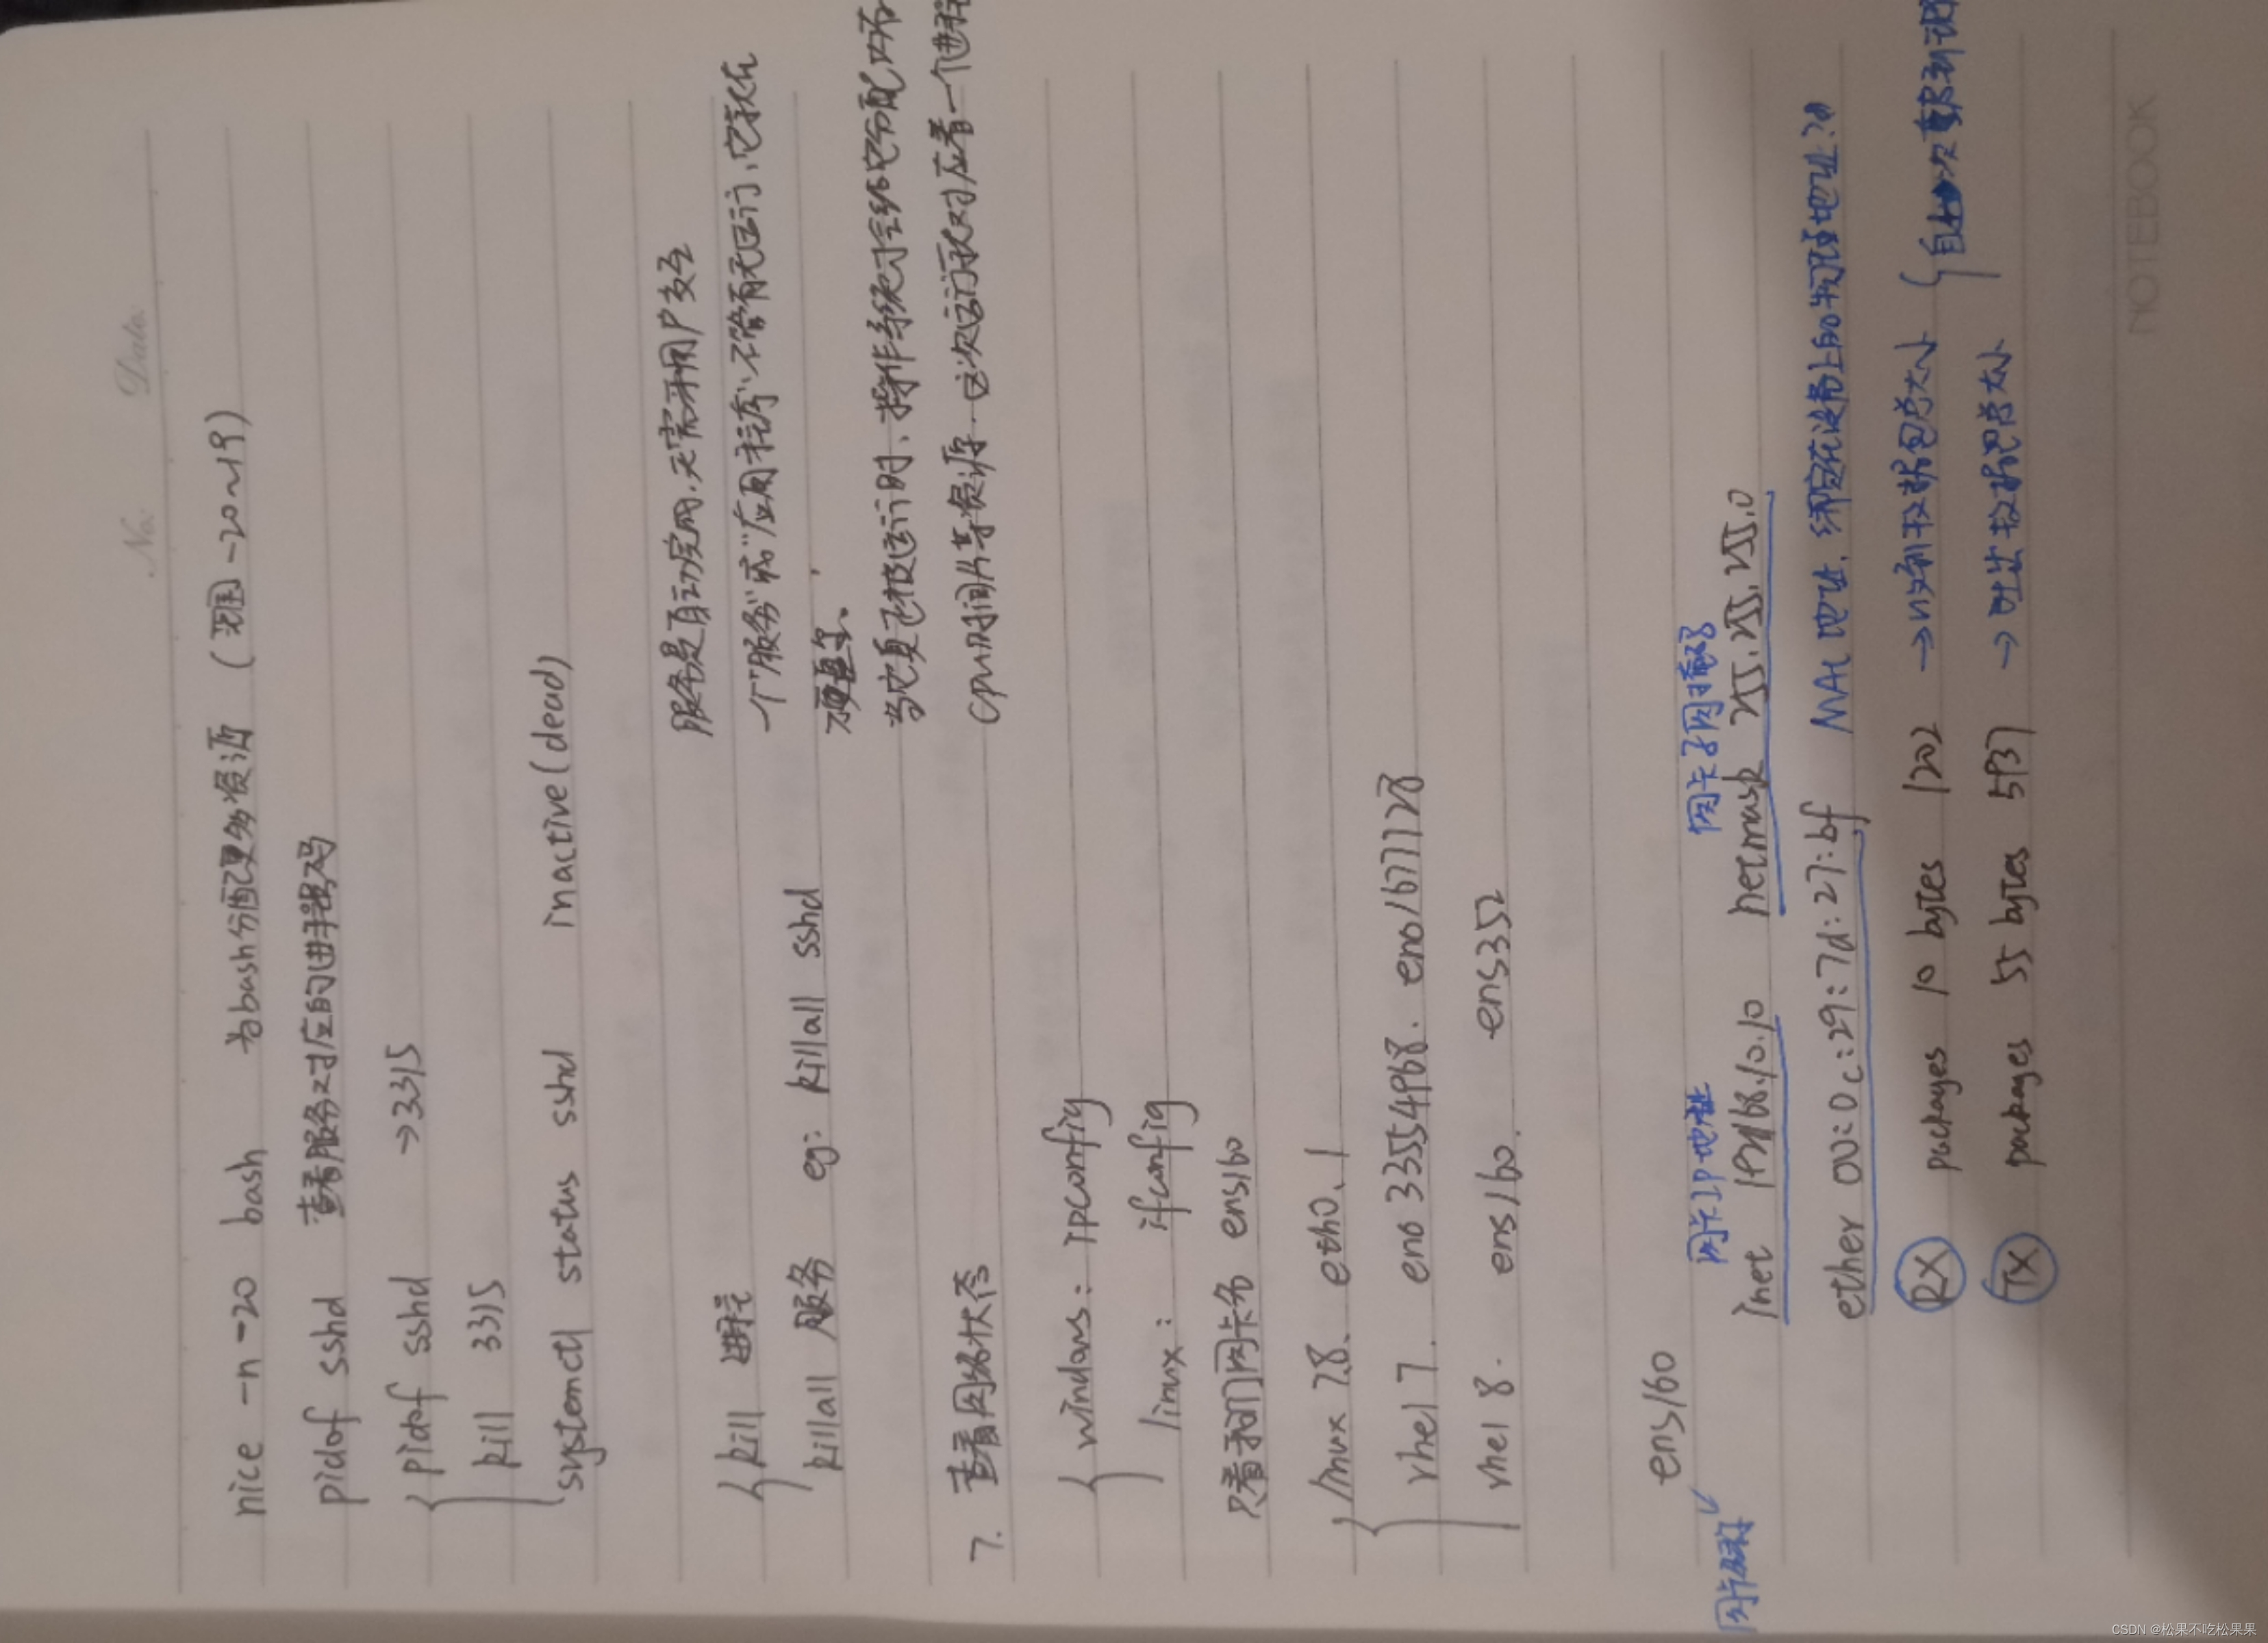 No.
Date
nice -n -20 bash 为bash分配更多资源 (范围 -20~19)
pidof sshd 查看服务对应的进程码
pidof sshd →3315
kill 3315
systemctl status sshd inactive(dead)
服务是自动完成,无需用户交互
kill 进程
一个"服务"或"应用程序"不管有无运行,它就在
killall 服务 eg: killall sshd
硬盘里、
当它真正被运行时、操作系统才会给它分配内存
7. 查看网络状态
CPU时间片等资源.这次运行就对应着一个进程
windows: IPconfig
linux: ifconfig
只看我们网卡名 ens160
linux 7.8. eth0.1
rhel 7. eno 33554968. eno1677128
rhel 8. ens160. ens352
ens160
网卡
网卡IP地址
网卡子网掩码
inet 192168.10.10 netmask 255.255.255.0
ether 00:0c:29:7d:27:bf MAC地址.绑定在设备上的物理地址.
RX packages 10 bytes 1202 →收到数据包总大小
TX packages 55 bytes 5937 →吐出数据包总大小
NOTEBOOK
CSDN @松果不吃松果果